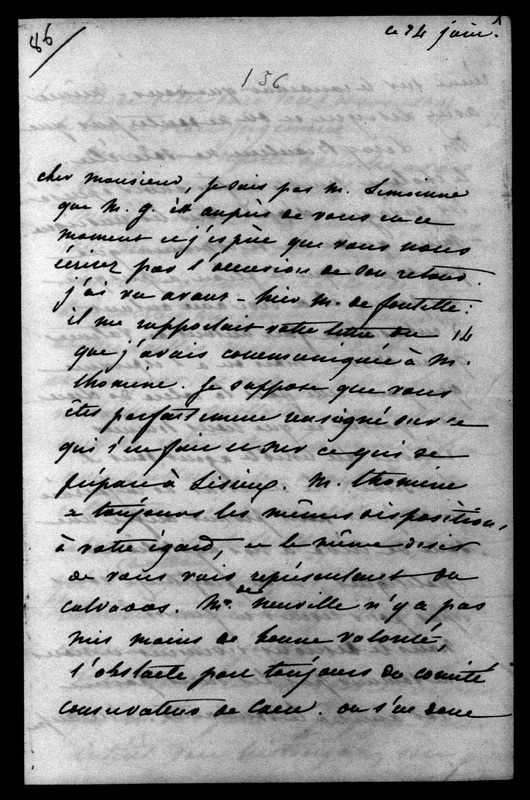 86
ce 24 juin
156
cher monsieur, je sais par m. Lemoinne
que M. g. est auprès de vous en ce
moment et j'espère que vous nous
écrirez par l'occasion de son retour.
j'ai vu avant-hier m. de fontette:
il me rapportait votre lettre du 14
que j'avais communiquée à M.
thomine. Je suppose que vous
êtes parfaitement renseigné sur ce
qui s'en fait et sur ce qui se
prépare à Lisieux. M. thomine
a toujours les mêmes dispositions,
à votre égard, et le même désir
de vous voir représentant du
calvados. Mr de Neuville n'y a pas
mis moins de bonne volonté,
l'obstacle part toujours du comité
conservateur de Caen. on s'en donc